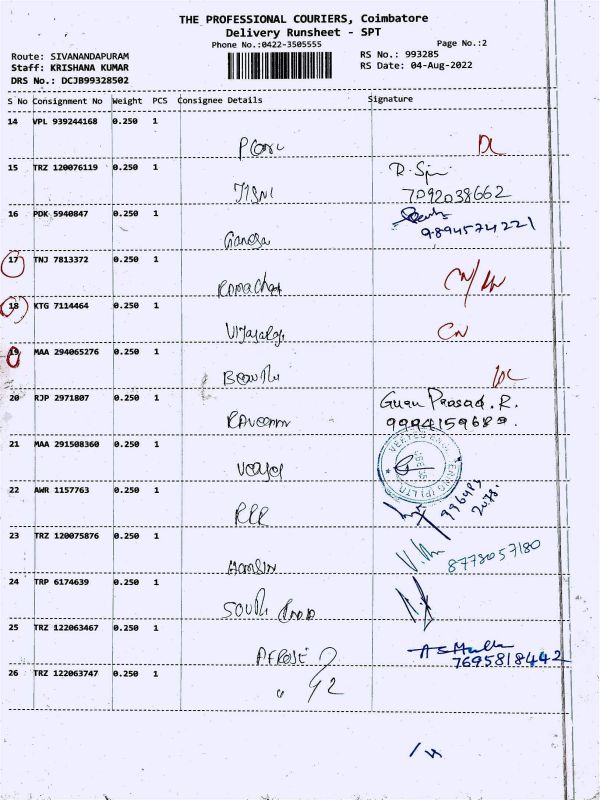 THE PROFESSIONAL COURIERS, Coimbatore
Delivery Runsheet - SPT
Phone No.:0422-3505555
Page No.:2
Route: SIVANANDAPURAM
Staff: KRISHANA KUMAR
DRS No.: DCJB99328502
RS No.: 993285
RS Date: 04-Aug-2022
S No Consignment No Weight PCS Consignee Details Signature
14 VPL 939244168 0.250 1
15 TRZ 120076119 0.250 1
R.
7092038662
16 PDK 5940847 0.250 1
Ganesa
9894574221
17 TNJ 7813372 0.250 1
18 KTG 7114464 0.250 1
CN
19 MAA 294065276 0.250 1
20 RJP 2971807 0.250 1
Guru Prasad. R.
9994159689.
21 MAA 291508360 0.250 1
22 AWR 1157763 0.250 1
RRR
23 TRZ 120075876 0.250 1
8778057180
24 TRP 6174639 0.250 1
South
25 TRZ 122063467 0.250 1
AFROSE
7695818442
26 TRZ 122063747 0.250 1